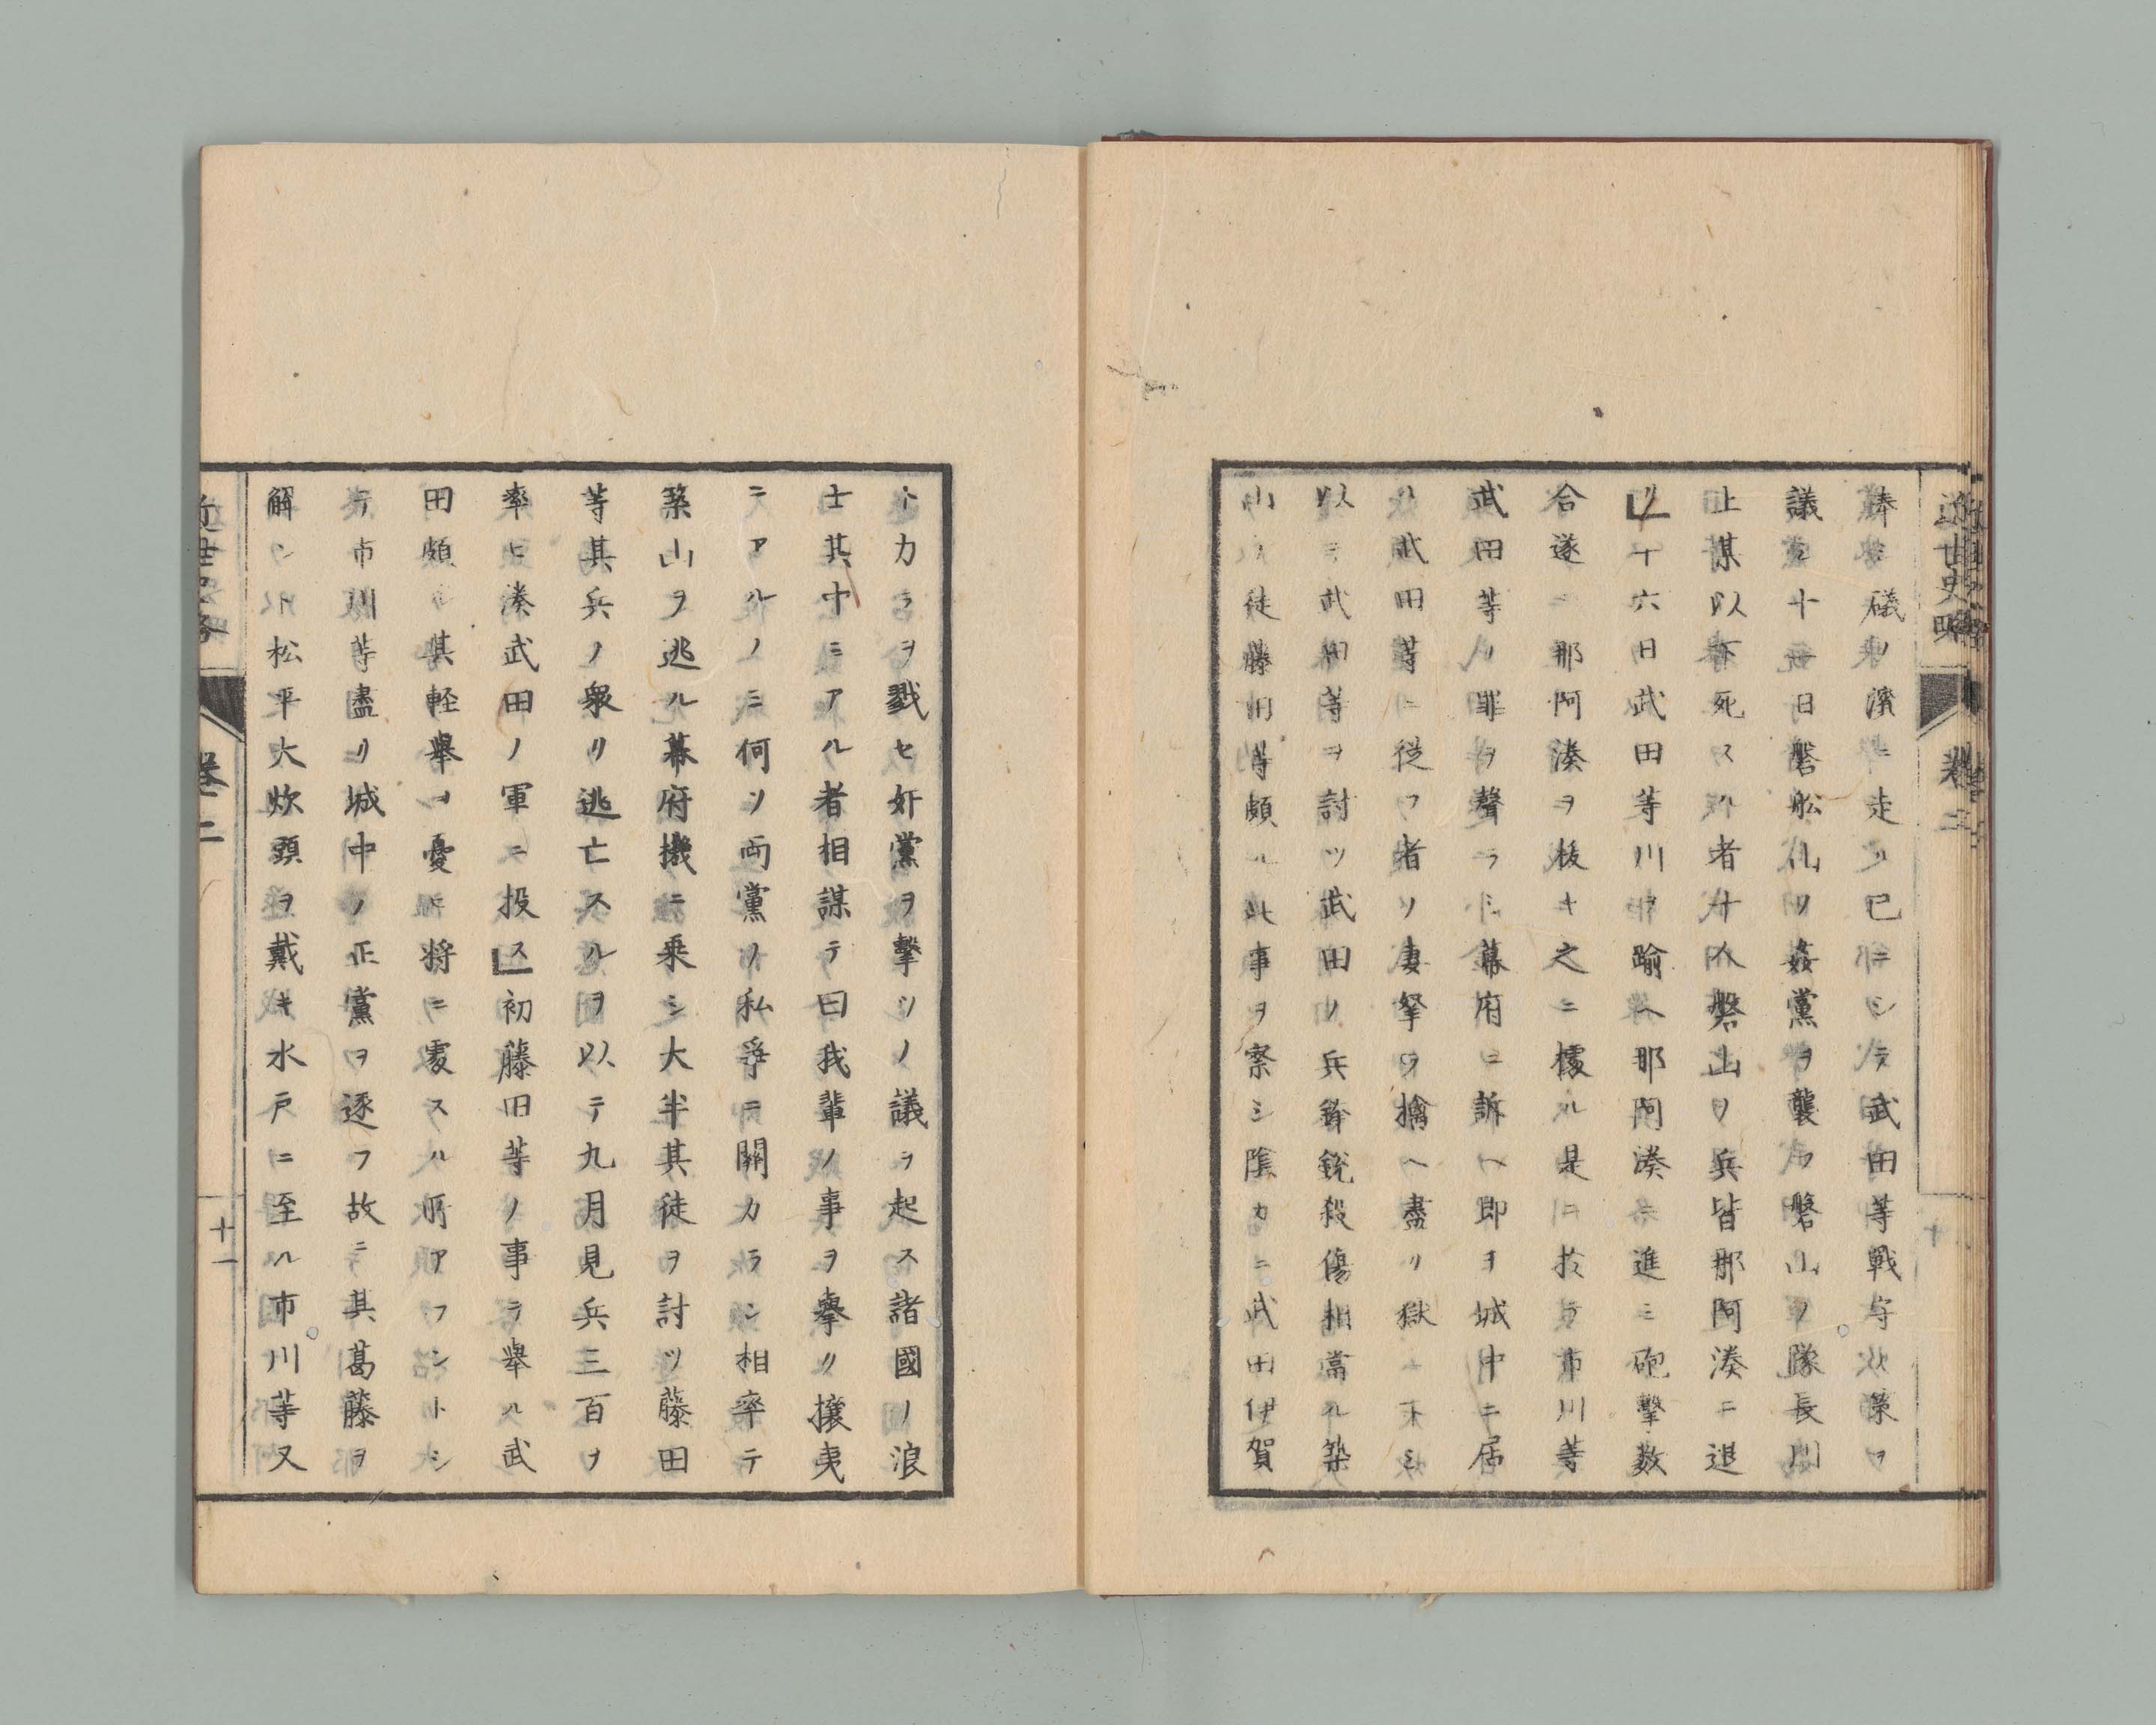 近世史略 卷二 十
奉シ礒ノ濱ニ走ル已ニシテ武田等戰守炊策ヲ
議シ十一日磐舩仙ノ姦黨ヲ襲フ磐山ノ隊長川
上某以下死スル者十人磐山ノ兵皆那阿湊ニ退
ク十六日武田等川ヲ踰ヘ那阿湊ニ進ミ砲擊数
合遂ニ那阿湊ヲ拔キ之ニ據ル是ニ於テ市川等
武田等ノ罪ヲ聲ラシ幕府ニ訴ヘ即ヲ城中ニ居
ル武田等ニ從フ者ノ妻孥ヲ擒ヘ盡ク獄ニ下シ
以テ武田等ヲ討ツ武田ノ兵鋒銳殺傷相當ル築
山ノ徒藤田等頗ル此事ヲ察シ陰カニ武田伊賀
ト力ラヲ戮セ奸黨ヲ擊ツノ議ヲ起ス諸國ノ浪
士其中ニアル者相謀テ曰我輩ノ事ヲ擧ク攘夷
ニアルノミ何ソ両黨ノ私爭ニ關カラン相率テ
築山ヲ逃ル幕府機ニ乗シ大半其徒ヲ討ツ藤田
等其兵ノ衆リ逃亡スルヲ以テ九月見兵三百ヲ
率ヒ湊武田ノ軍ニ投ス初藤田等ノ事ヲ擧ル武
田頗ル其軽擧ヲ憂ヒ将ニ處スル所アラントシ
テ市川等盡ク城中ノ正黨ヲ逐フ故ニ其葛藤ヲ
解ン爪松平大炊頭ヲ戴キ水戸ニ至ル市川等又
近世史略 卷二 十一